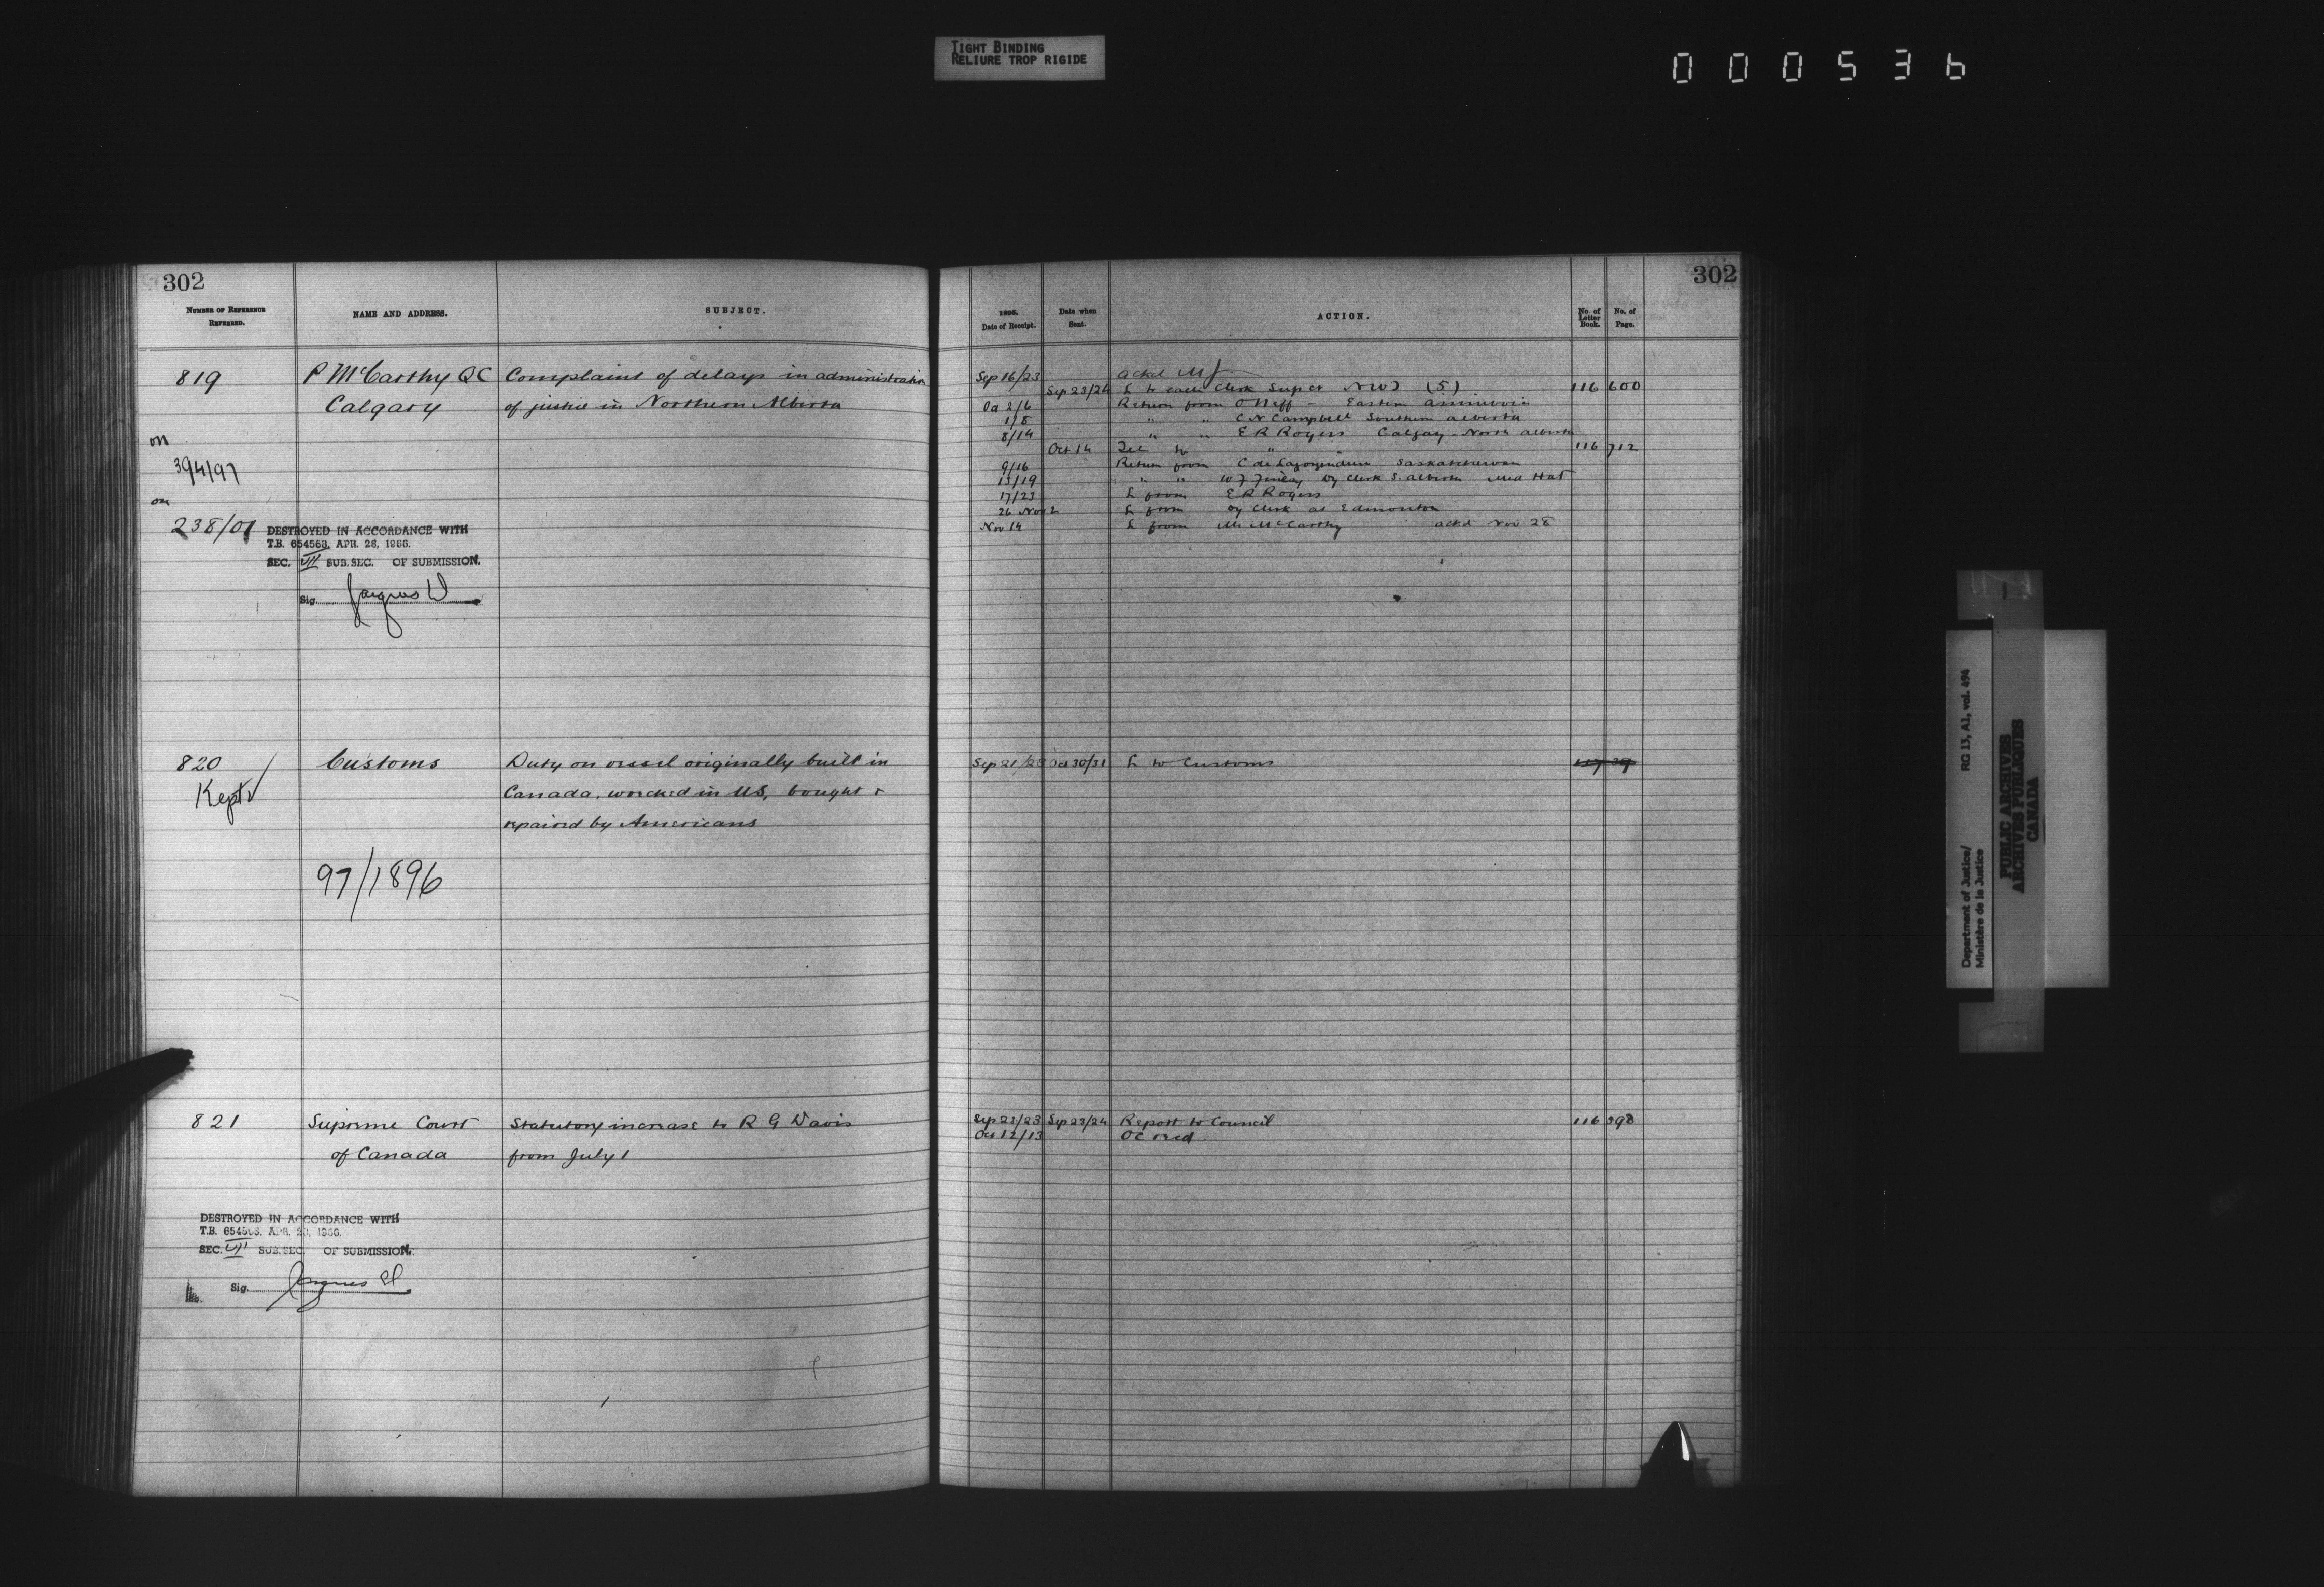 TIGHT BINDING
RELIURE TROP RIGIDE
000536
302
NUMBER OF REFERENCE REFERRED.
NAME AND ADDRESS.
SUBJECT.
819
P McCarthy QC
Complaint of delays in administration
Calgary
of justice in Northern Alberta
on
394/97
on
238/01
DESTROYED IN ACCORDANCE WITH
T.B. 654563, APR. 28, 1966.
SEC. VII SUB. SEC. OF SUBMISSION.
Sig.
820
Customs
Duty on vessel originally built in
Kept
Canada, wrecked in US, bought &
repaired by Americans
97/1896
821
Supreme Court
Statutory increase to R G Davis
of Canada
from July 1
DESTROYED IN ACCORDANCE WITH
T.B. 654563, APR. 28, 1966.
SEC. VII SUB. SEC. OF SUBMISSION.
Sig.
302
1896.
Date of Receipt.
Date when Sent.
ACTION.
No. of Letter Book.
No. of Page.
Sep 16/23 ackd MJ
Sep 23/24 L to each Clerk Sup Ct NWT (5) 116 600
Oct 2/6 Return from O Neff - Eastern Assiniboia
1/8 " " C N Campbell Southern Alberta
8/14 " " E R Rogers Calgary - North Alberta
Oct 14 Tel to " 116 712
9/16 Return from Saskatchewan
13/19 " " W J Finlay Dy Clerk S. Alberta Med Hat
17/23 L from E R Rogers
26 Nov 2 L from Dy Clerk at Edmonton
Nov 14 L from Mr McCarthy ackd Nov 28
Sep 21/23 Oct 30/31 L to Customs 117 39
Sep 21/23 Sep 23/24 Report to Council 116 598
Oct 12/13 OC recd
Department of Justice/
Ministère de la Justice
RG 13, A1, vol. 494
PUBLIC ARCHIVES
ARCHIVES PUBLIQUES
CANADA